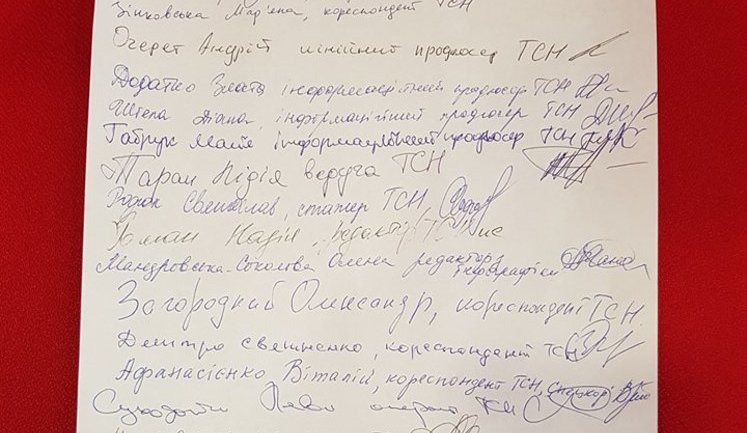 Зінковська Мар'яна, кореспондент ТСН
Очерет Андрій лінійний продюсер ТСН
Додатко Злата інформаційний продюсер ТСН
Штепа Діана, інформаційний продюсер ТСН
Габрук Майя інформаційний продюсер ТСН
Таран Лідія ведуча ТСН
Святослав, стажер ТСН,
Надія, редактор ТСН
Мандровська-Соколова Олена редактор інфографіки
Загородний Олександр, кореспондент ТСН
Дмитро Святненко, кореспондент ТСН
Афанасієнко Віталій, кореспондент ТСН,
ТСН